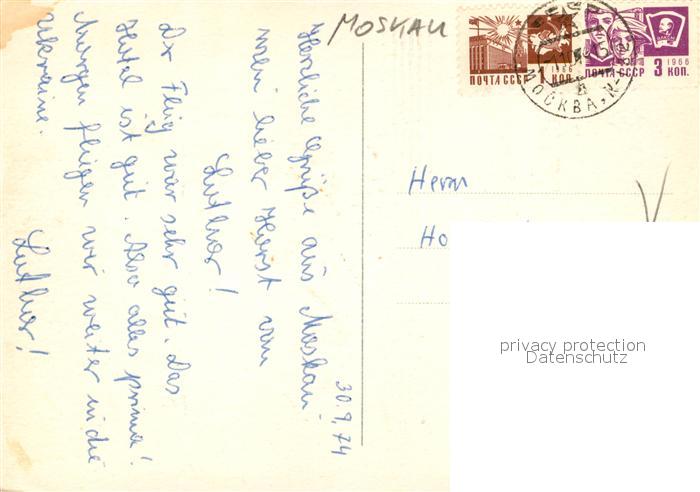 MOSKAU
30.9.74
Herzliche Grüße aus Moskau
mein lieber Horst von
Luther!
Der Flug war sehr gut. Das
Hotel ist gut. Also alles prima!
Morgen fliegen wir weiter in die
Ukraine.
Luther!
ПОЧТА СССР 1 КОП.
1966
ПОЧТА СССР 3 КОП.
МОСКВА
Herrn
Ho
privacy protection
Datenschutz